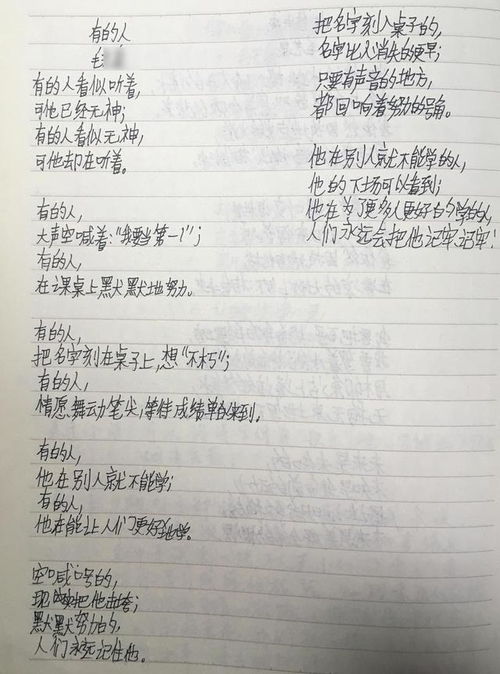 有的人
有的人看似听着,
可他已经无神;
有的人看似无神,
可他却在听着。
有的人,
大声空喊着:“我要当第一!”;
有的人,
在课桌上默默地努力。
有的人,
把名字刻在桌子上,想“不朽”;
有的人,
情愿舞动笔尖,等待成绩单的来到。
有的人,
他在别人就不能学;
有的人,
他在能让人们更好地学。
空喊口号的,
现实把他击垮;
默默努力的,
人们永远记住他。
把名字刻入桌子的,
名字比人消失的更早;
只要有声音的地方,
都回响着努力的号角。
他在别人就不能学的人,
他的下场可以看到;
他在为了更多人更好的学的人,
人们永远会把他记牢,记牢!